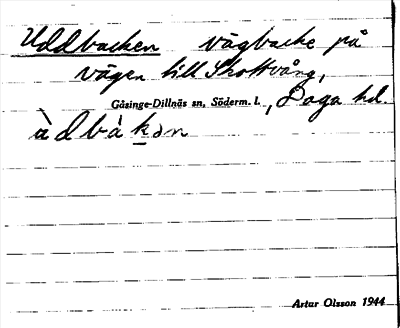 Uddbacken vägbacke på
vägen till Skottvång,
Gåsinge-Dillnäs sn, Söderm. l., Daga hd.
ùdbàkən
Artur Olsson 1944